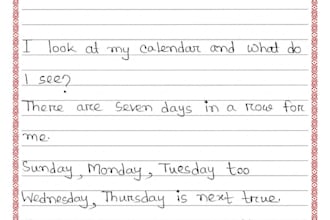 I look at my calendar and what do
I see?
There are seven days in a row for
me.
Sunday, Monday, Tuesday too
Wednesday, Thursday is next true.